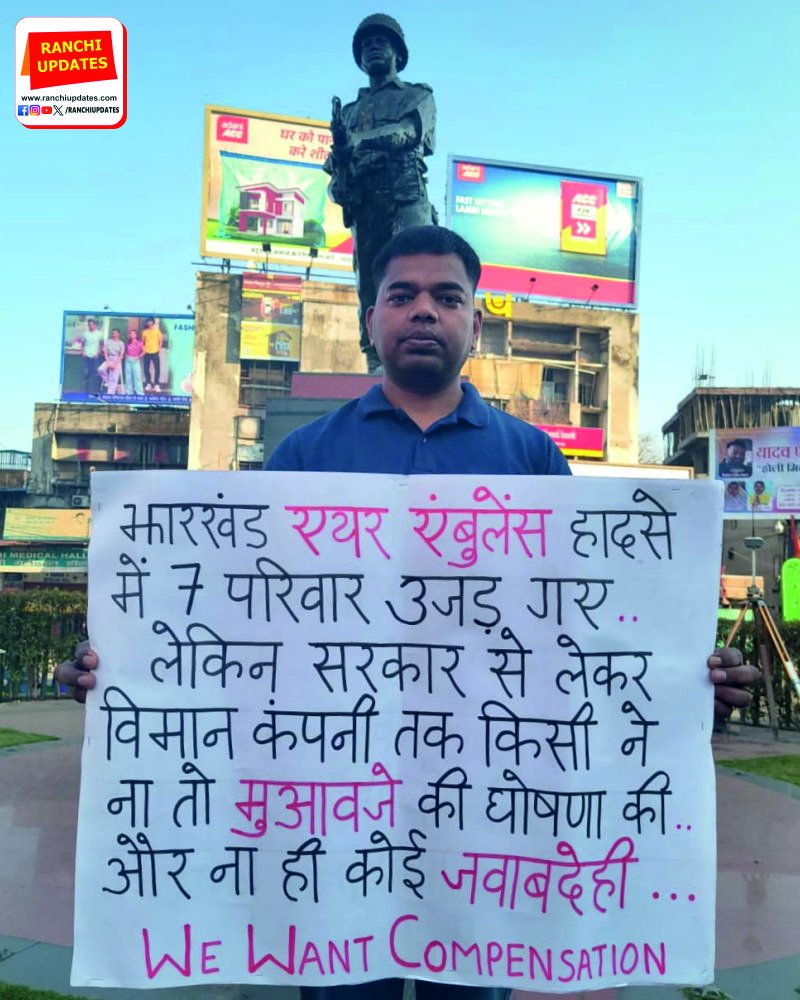 RANCHI
UPDATES
www.ranchiupdates.com
/RANCHIUPDATES
adani
ACC
घर को
ACC
FAST SETTING
ACC
FASH
bank
यादव
"होली
MEDICAL HALL
झारखंड एयर एंबुलेंस हादसे
में 7 परिवार उजड़ गए..
लेकिन सरकार से लेकर
विमान कंपनी तक किसी ने
ना तो मुआवजे की घोषणा की..
और ना ही कोई जवाबदेही ...
WE WANT COMPENSATION